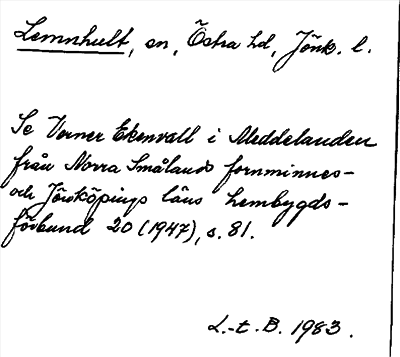 Lemnhult, sn, Östra hd, Jönk. l.
Se Verner Ekenvall i Meddelanden
från Norra Smålands fornminnes-
och Jönköpings läns hembygds-
förbund 20 (1947), s. 81.
L.-t. B. 1983.